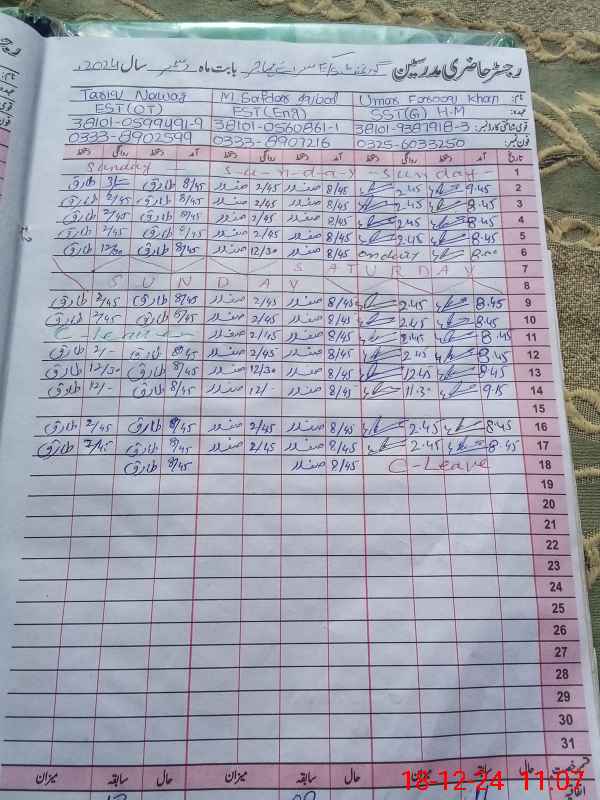 رجسٹر حاضری مدرسین بابت ماہ دسمبر سال 2024ء
نام: Umar Farooq Khan M Safdar Iqbal Tariq Nawaz
عہدہ: SST(G) H.M EST(Eng) EST(OT)
قومی شناختی کارڈ نمبر: 38101-9387918-3 38101-0560861-1 38101-0599491-9
فون نمبر: 0325-6033250 0333-8907216 0333-8902599
تاریخ آمد دستخط روانگی دستخط آمد دستخط روانگی دستخط آمد دستخط روانگی دستخط
1 Sunday S-u-n-d-a-y Sunday
2 8.45 2.45 8/45 صفدر 2/45 صفدر 8/45 طارق طارق
3 8.45 2.45 8/45 صفدر 2/45 صفدر 8/45 طارق 2/45 طارق
4 8.45 2.45 8/45 صفدر 2/45 صفدر 8/45 طارق 2/45 طارق
5 8.45 2.45 8/45 صفدر 2/45 صفدر 8/45 طارق 2/45 طارق
6 8.00 8/45 صفدر 12/30 صفدر 8/45 طارق 12/30 طارق
7 SATURDAY
8 SUNDAY
9 8.45 2.45 8/45 صفدر 2/45 صفدر 8/45 طارق 2/45 طارق
10 8.45 2.45 8/45 صفدر 2/45 صفدر 8/45 طارق 2/45 طارق
11 8.45 2.45 8/45 صفدر 2/45 صفدر C-Leave
12 8.45 2.45 8/45 صفدر 2/45 صفدر 8/45 طارق 2/- طارق
13 8.45 12.45 8/45 صفدر 12/30 صفدر 8/45 طارق 12/30 طارق
14 9.15 11.30 8/45 صفدر 12/- صفدر 8/45 طارق 12/- طارق
15
16 8.45 2.45 8/45 صفدر 2/45 صفدر 8/45 طارق 2/45 طارق
17 8.45 2.45 8/45 صفدر 2/45 صفدر 8/45 طارق 2/45 طارق
18 C-Leave 8/45 صفدر 8/45 طارق
19
20
21
22
23
24
25
26
27
28
29
30
31
قسم رخصت حال سابقہ میزان حال سابقہ میزان حال سابقہ میزان
اتفاقیہ
18-12-24 11:07